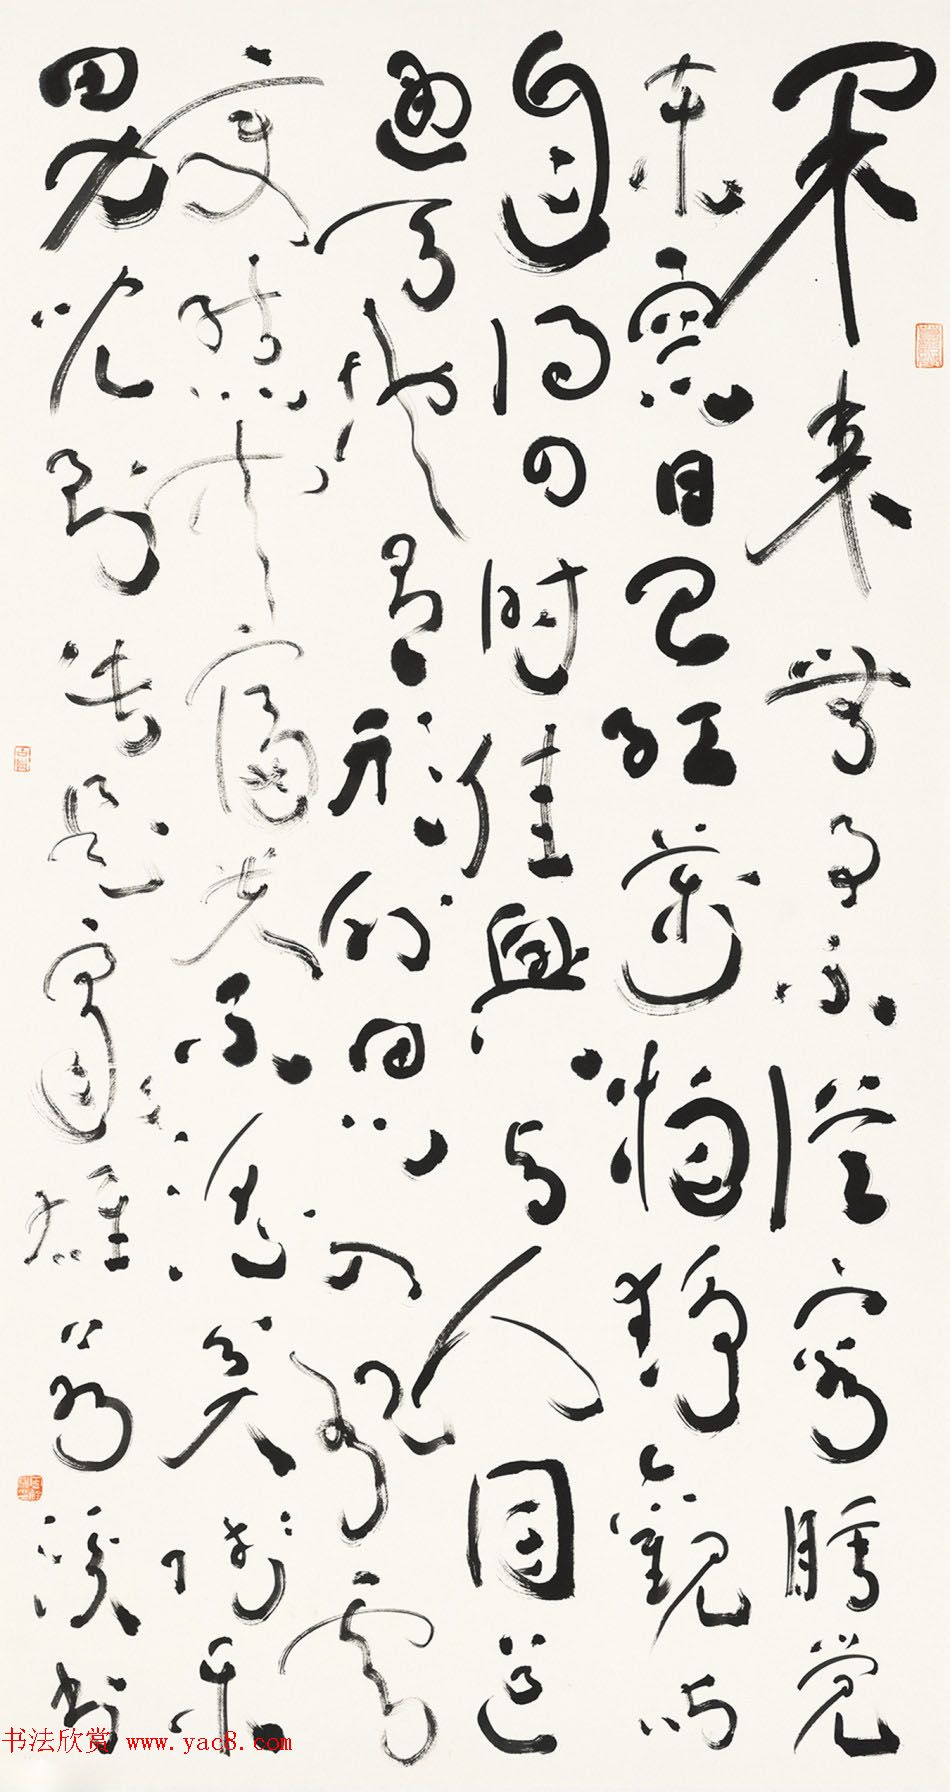 閑来無事不從容睡覺
東窗日已紅萬物靜觀皆
自得四時佳興与人同道
通天地有形外思入風雲
變態中富貴不淫貧賤樂
男兒到此是豪雄 溪書
书法欣赏 www.yac8.com